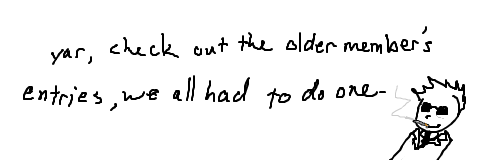 yar, check out the older member's
entries, we all had to do one-